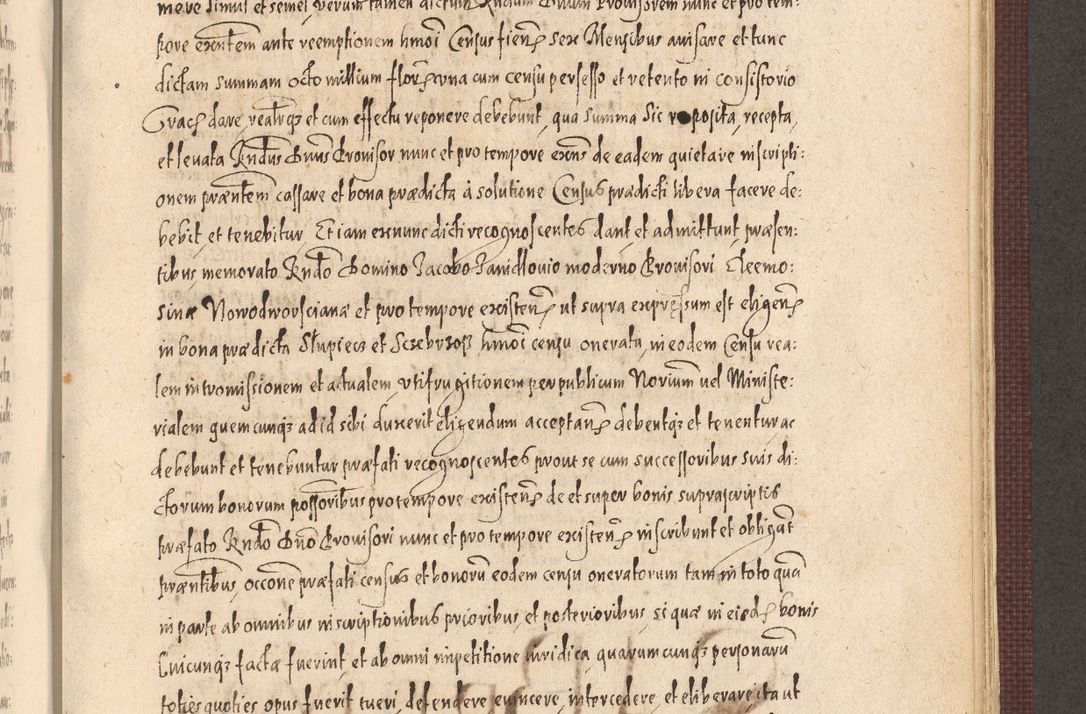 mere simul et semel, verum tamen dictum Rndum Dnum Provisorem nunc et pro tem:
pore exntem ante reemptionem hmoi Census fien sex Mensibus avisare et tunc
dictam summam octo millium flor una cum censu persesso et retento in consistorio
Grac dare, realrqz et cum effectu reponere debebunt, qua summa sic reposita, recepta,
et levata Rndus Dnus Provisor nunc et pro tempore exens de eadem quietare inscripti:
onem præntem cassare et bona prædicta à solutione Census prædicti libera facere de:
bebit, et tenebitur, Et iam exnunc dicti recognoscentes dant et admittunt, præsen:
tibus, memorato Rndo Domino Jacobo Janidlovio moderno Provisori Eleemo:
sinæ Nowodworscianæ et pro tempore existen ut supra expressum est eligen
in bona prædicta Slupiecz et Sczebrzosz hmoi censu onerata, in eodem Censu rea:
lem intromissionem et actualem, utifrugitionem per publicum Norium vel Ministe:
rialem quemcunqz ad id sibi duxerit eligendum acceptan debentqz et tenentur ac
debebunt et tenebuntur præfati recognoscentes prout se cum successoribus suis di:
ctorum bonorum possoribus pro tempore existen de et super bonis suprascriptis
præfato Rndo Dno Provisori nunc et pro tempore existen inscribunt et obligat
præntibus, occone præfati census et bonoru eodem censu oneratorum tam in toto qua
in parte ab omnibus inscriptionibus prioribus, et posterioribus, si quæ in eisd bonis
Cuicunqz factæ fuerint, et ab omni impetitione iuridica quarumcunqz personaru
toties quoties opus fuerit tueri, defendere evincere, intercedere, et eliberare, ita ut